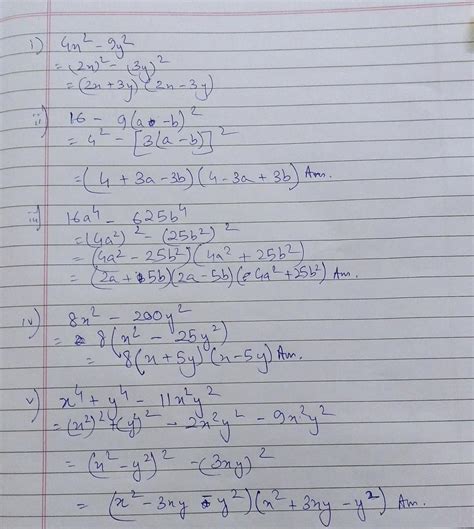 i) 4x² - 9y²
= (2x)² - (3y)²
= (2x + 3y) (2x - 3y)
ii) 16 - 9(a - b)²
= 4² - [3(a - b)]²
= (4 + 3a - 3b) (4 - 3a + 3b) Ans.
iii) 16a⁴ - 625b⁴
= (4a²)² - (25b²)²
= (4a² - 25b²) (4a² + 25b²)
= (2a + 5b) (2a - 5b) (4a² + 25b²) Ans.
iv) 8x² - 200y²
= 8(x² - 25y²)
= 8(x + 5y) (x - 5y) Ans.
v) x⁴ + y⁴ - 11x²y²
= (x²)² + (y²)² - 2x²y² - 9x²y²
= (x² - y²)² - (3xy)²
= (x² - 3xy - y²) (x² + 3xy - y²) Ans.